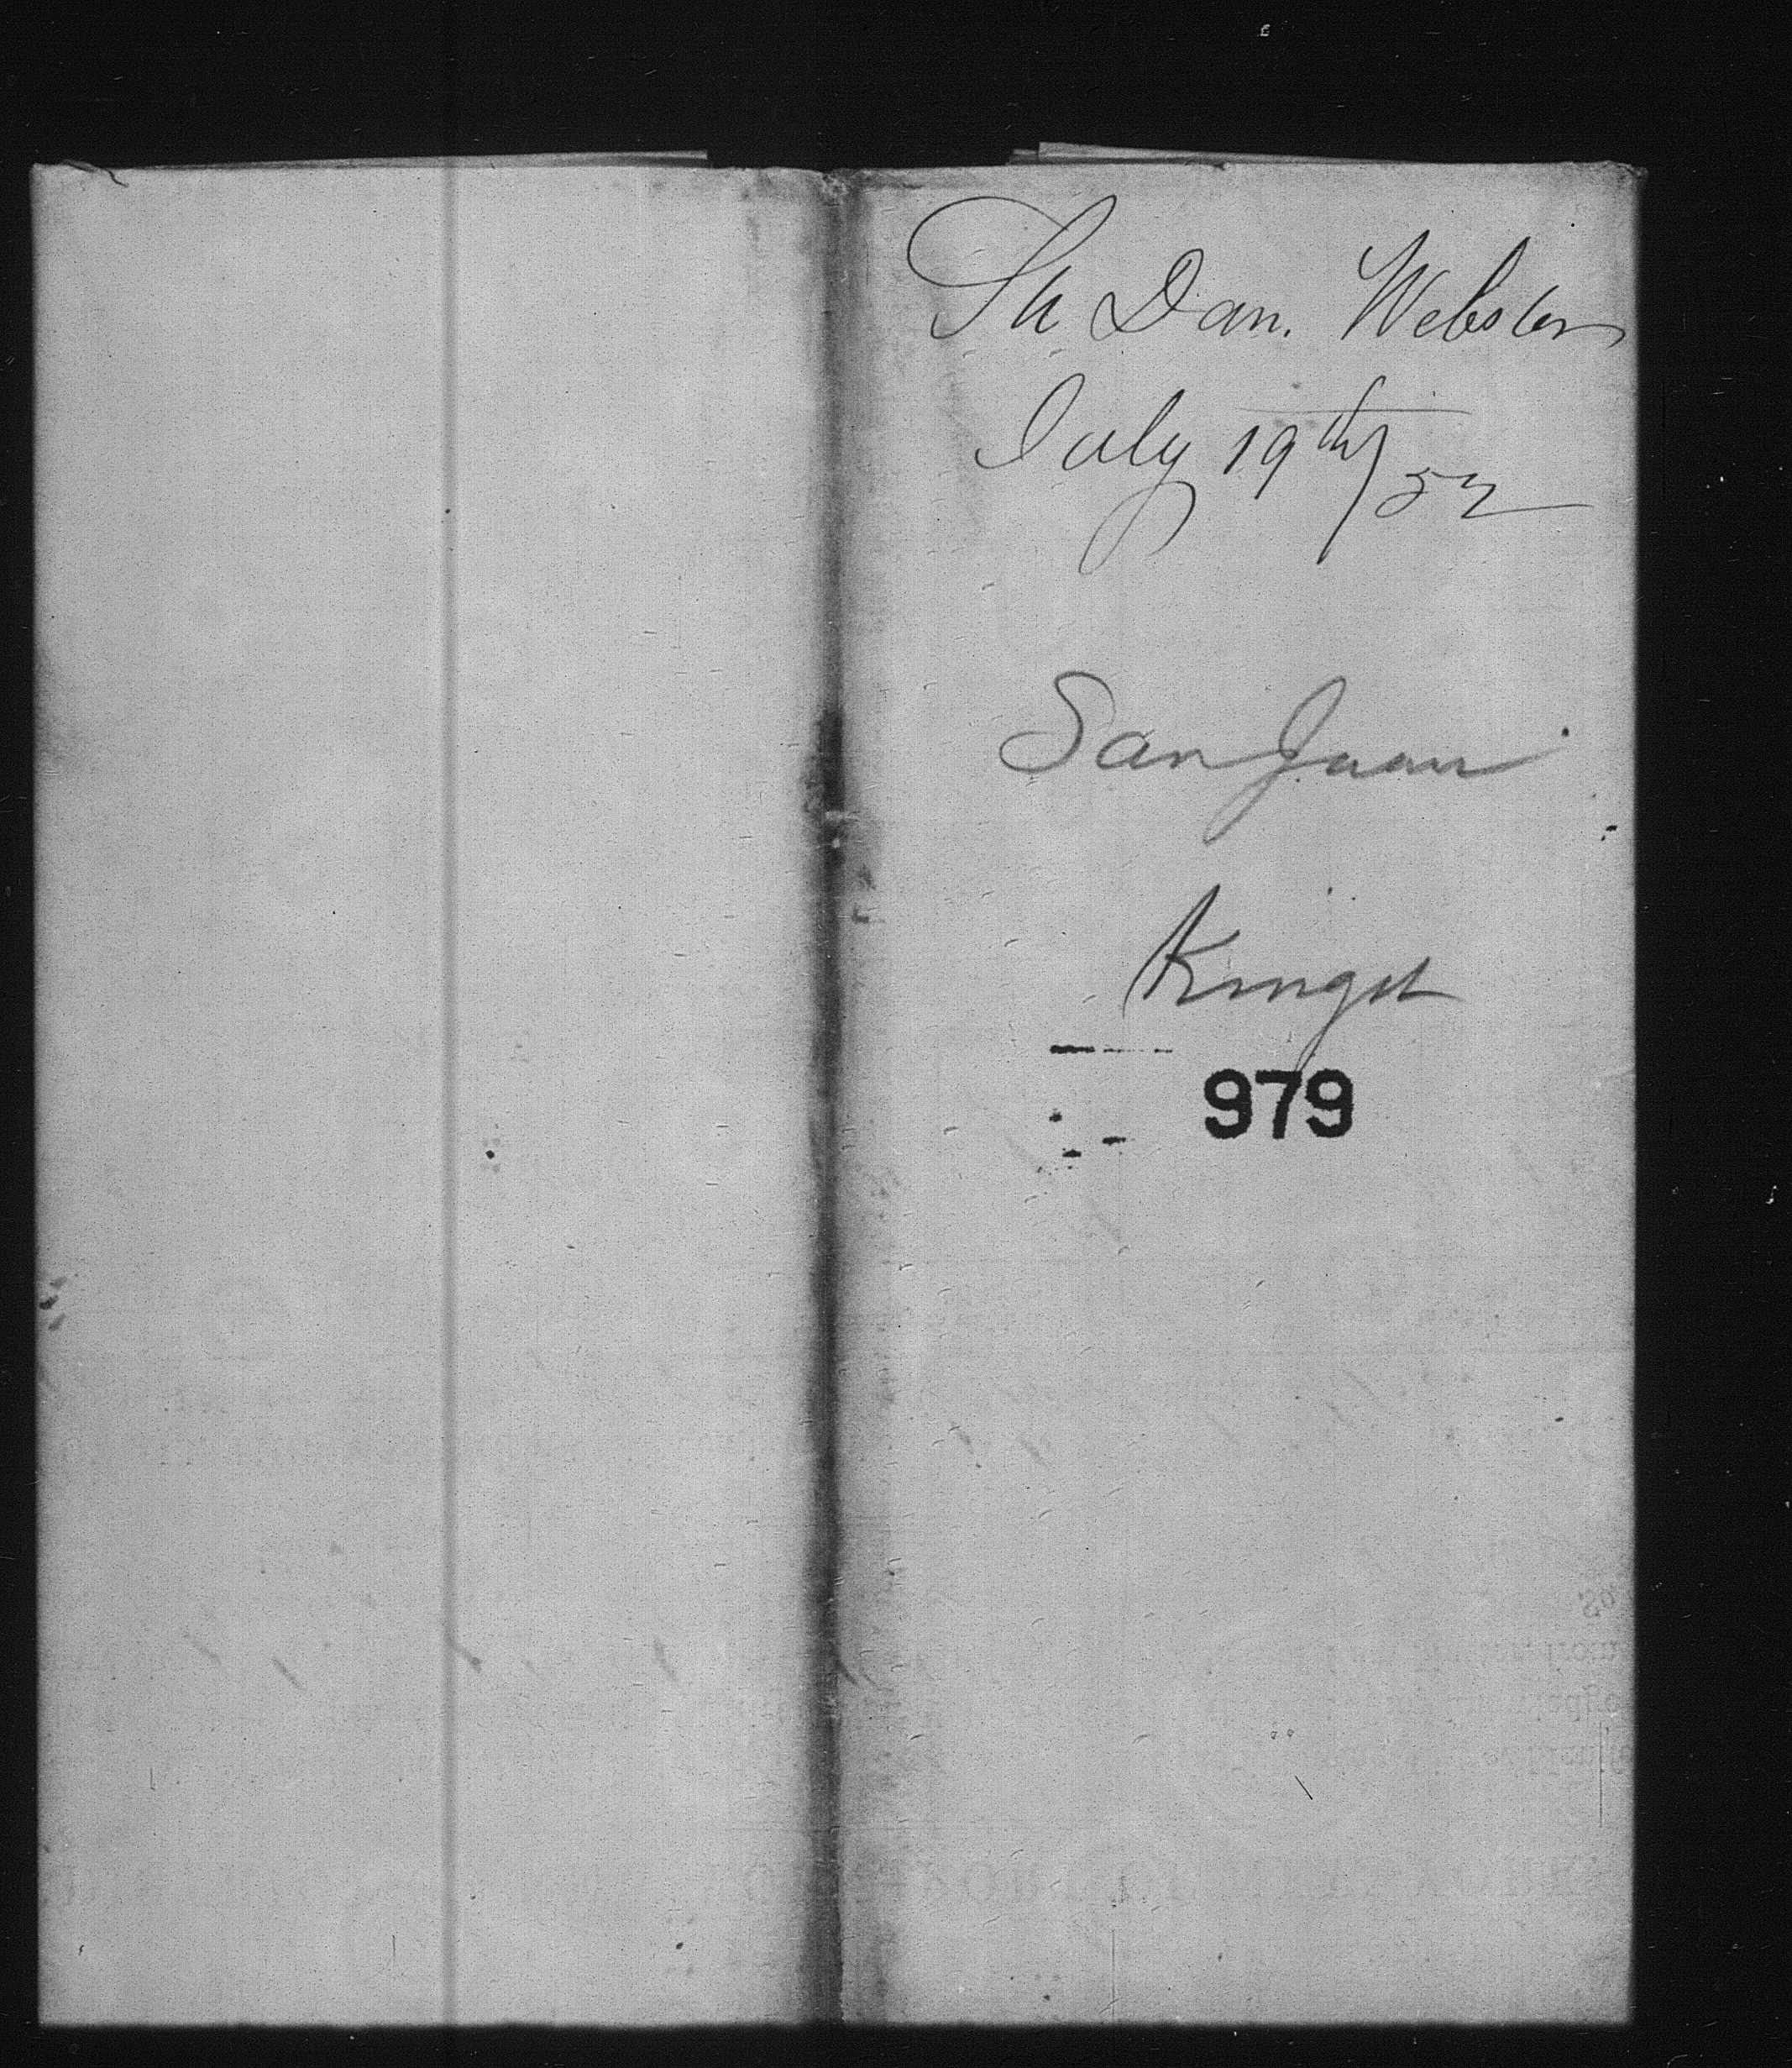 Sh Dan. Webster
July 19th/52
San Juan
Kingst
979